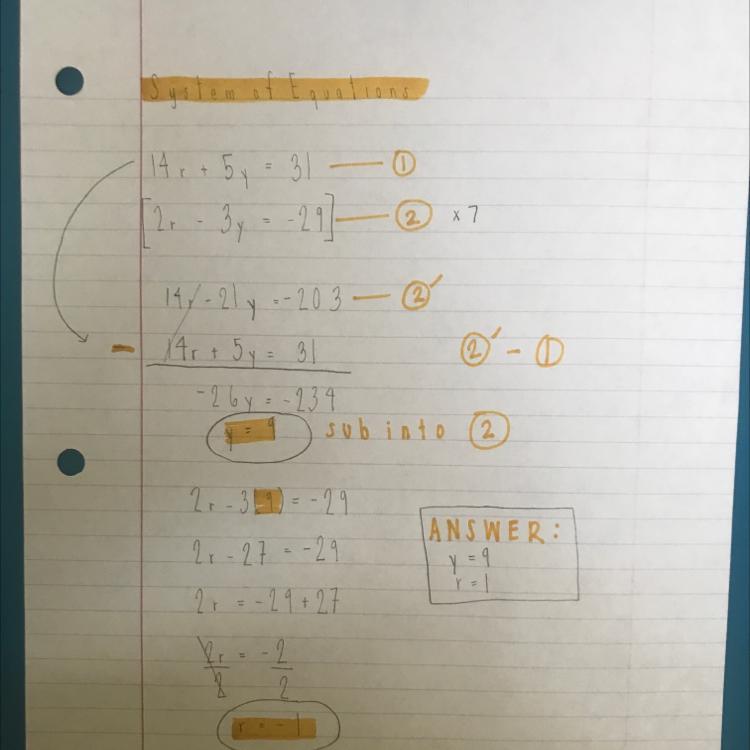 System of Equations
14r + 5y = 31 — ①
[2r - 3y = -29] — ② x 7
14r - 21y = -203 — ②′
- 14r + 5y = 31 ②′ - ①
-26y = -234
y = 9 sub into ②
2r - 3(9) = -29
2r - 27 = -29
2r = -29 + 27
2r = -2
2 2
r = -1
ANSWER:
y = 9
r = 1